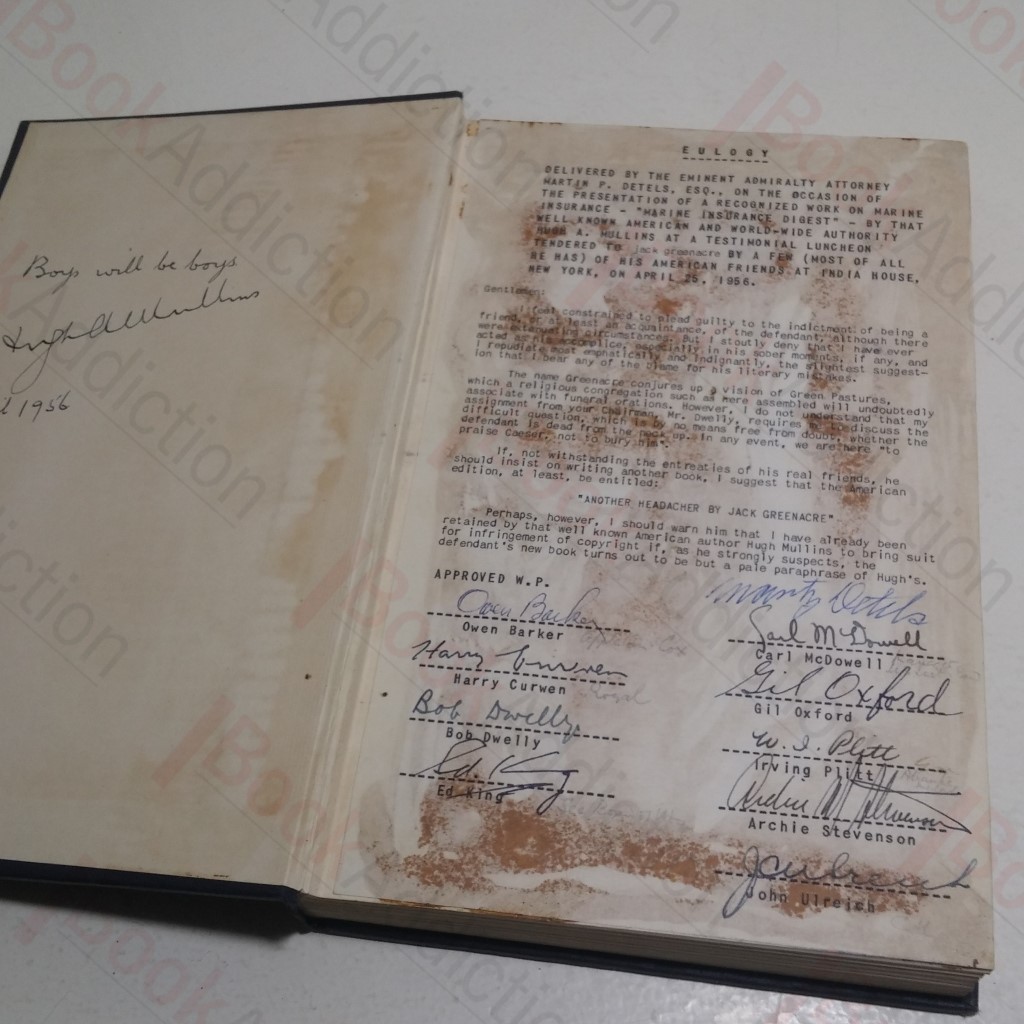 Boys will be boys
Hugh A Mullins
1956
EULOGY
DELIVERED BY THE EMINENT ADMIRALTY ATTORNEY
MARTIN P. DETELS, ESQ., ON THE OCCASION OF
THE PRESENTATION OF A RECOGNIZED WORK ON MARINE
INSURANCE - "MARINE INSURANCE DIGEST" - BY THAT
WELL KNOWN AMERICAN AND WORLD-WIDE AUTHORITY
HUGH A. MULLINS AT A TESTIMONIAL LUNCHEON
TENDERED TO jack greenacre BY A FEW (MOST OF ALL
HE HAS) OF HIS AMERICAN FRIENDS AT INDIA HOUSE,
NEW YORK, ON APRIL 25, 1956.
Gentlemen:
I feel constrained to plead guilty to the indictment of being a
friend, or at least an acquaintance, of the defendant, although there
were extenuating circumstances. But I stoutly deny that I have ever
acted as his accomplice, especially in his sober moments, if any, and
I repudiate most emphatically and indignantly, the slightest suggest-
ion that I bear any of the blame for his literary mistakes.
The name Greenacre conjures up a vision of Green Pastures,
which a religious congregation such as here assembled will undoubtedly
associate with funeral orations. However, I do not understand that my
assignment from your Chairman, Mr. Dwelly, requires me to discuss the
difficult question, which is by no means free from doubt, whether the
defendant is dead from the neck up. In any event, we are here "to
praise Caesar, not to bury him".
If, not withstanding the entreaties of his real friends, he
should insist on writing another book, I suggest that the American
edition, at least, be entitled:
"ANOTHER HEADACHER BY JACK GREENACRE"
Perhaps, however, I should warn him that I have already been
retained by that well known American author Hugh Mullins to bring suit
for infringement of copyright if, as he strongly suspects, the
defendant's new book turns out to be but a pale paraphrase of Hugh's.
APPROVED W.P.
Martin Detels
Owen Barker
Owen Barker
Carl McDowell
Carl McDowell
Harry Curwen
Harry Curwen
Gil Oxford
Gil Oxford
Bob Dwelly
Bob Dwelly
W. I. Plitt
Irving Plitt
Ed. King
Ed King
Archie M Stevenson
Archie Stevenson
J C Ulreich
John Ulreich
BookAddiction